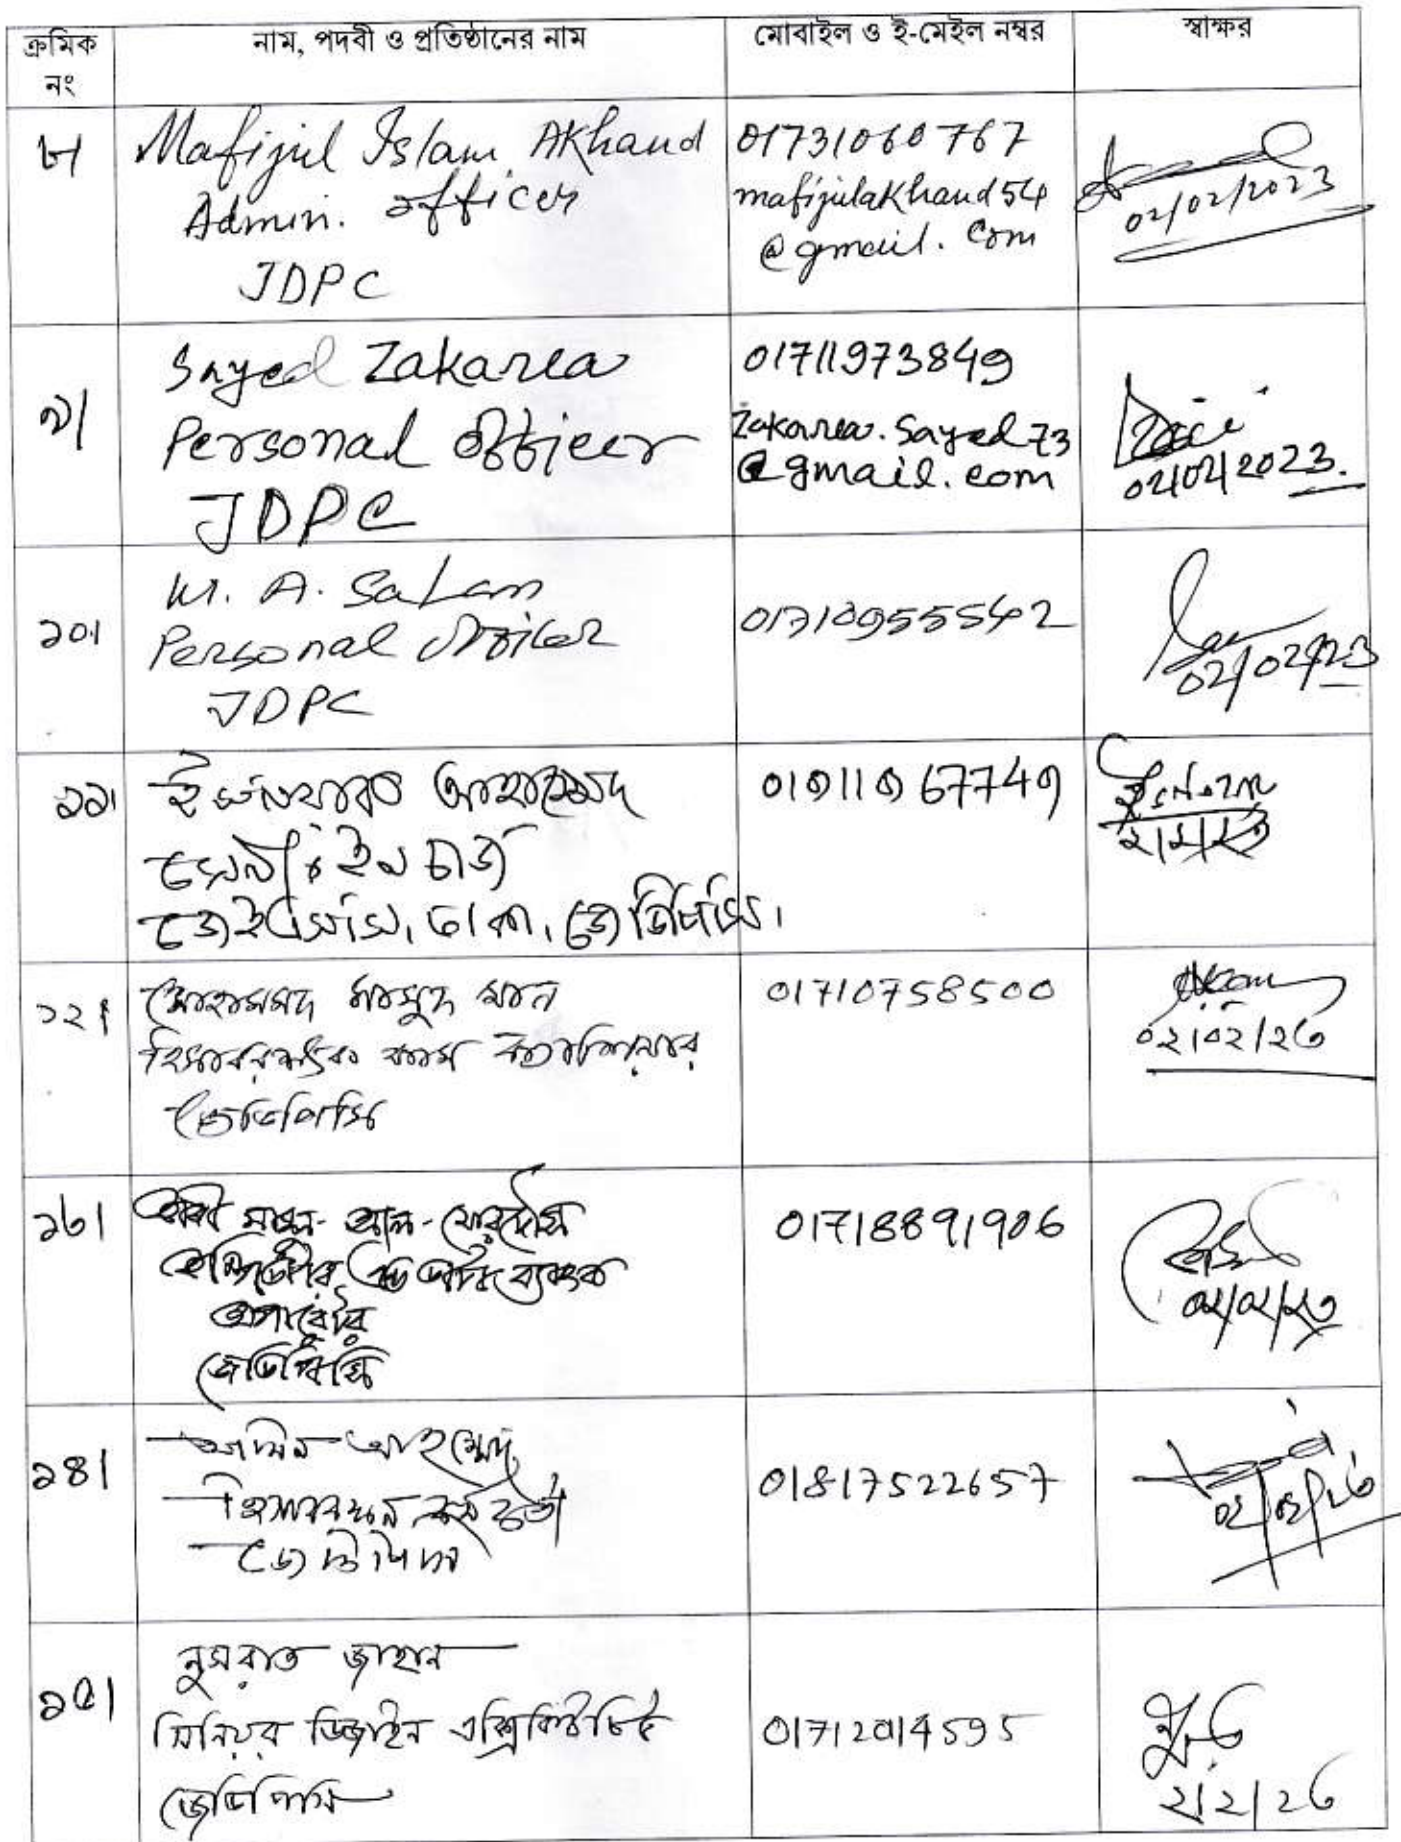 ক্রমিক নং
নাম, পদবী ও প্রতিষ্ঠানের নাম
মোবাইল ও ই-মেইল নম্বর
স্বাক্ষর
৮।
Mafijul Islam Akhand
Admin. officer
JDPC
01731060767
mafijulakhand54
@gmail.com
02/02/2023
৯।
Sayed Zakarea
Personal Officer
JDPC
01711973849
Zakarea.Sayed73
@gmail.com
02/02/2023.
১০।
M. A. Salam
Personal Officer
JDPC
01710955542
02/02/23
১১।
আহামেদ
ইন চার্জ
জেইএসসি, ঢাকা, জেডিপিসি।
১২।
মোহাম্মদ মাসুদ খান
হিসাবরক্ষক কাম ক্যাশিয়ার
জেডিপিসি
01710758500
০২/০২/২৩
১৩।
অপারেটর
জেডিপিসি
01718891906
০২/০২/২৩
১৪।
আহমেদ
হিসাবরক্ষন কর্মকর্তা
জেডিপিসি
01817522657
০২/০২/২৩
১৫।
নুসরাত জাহান
সিনিয়র ডিজাইন
জেডিপিসি
01712014595
২/২/২৩